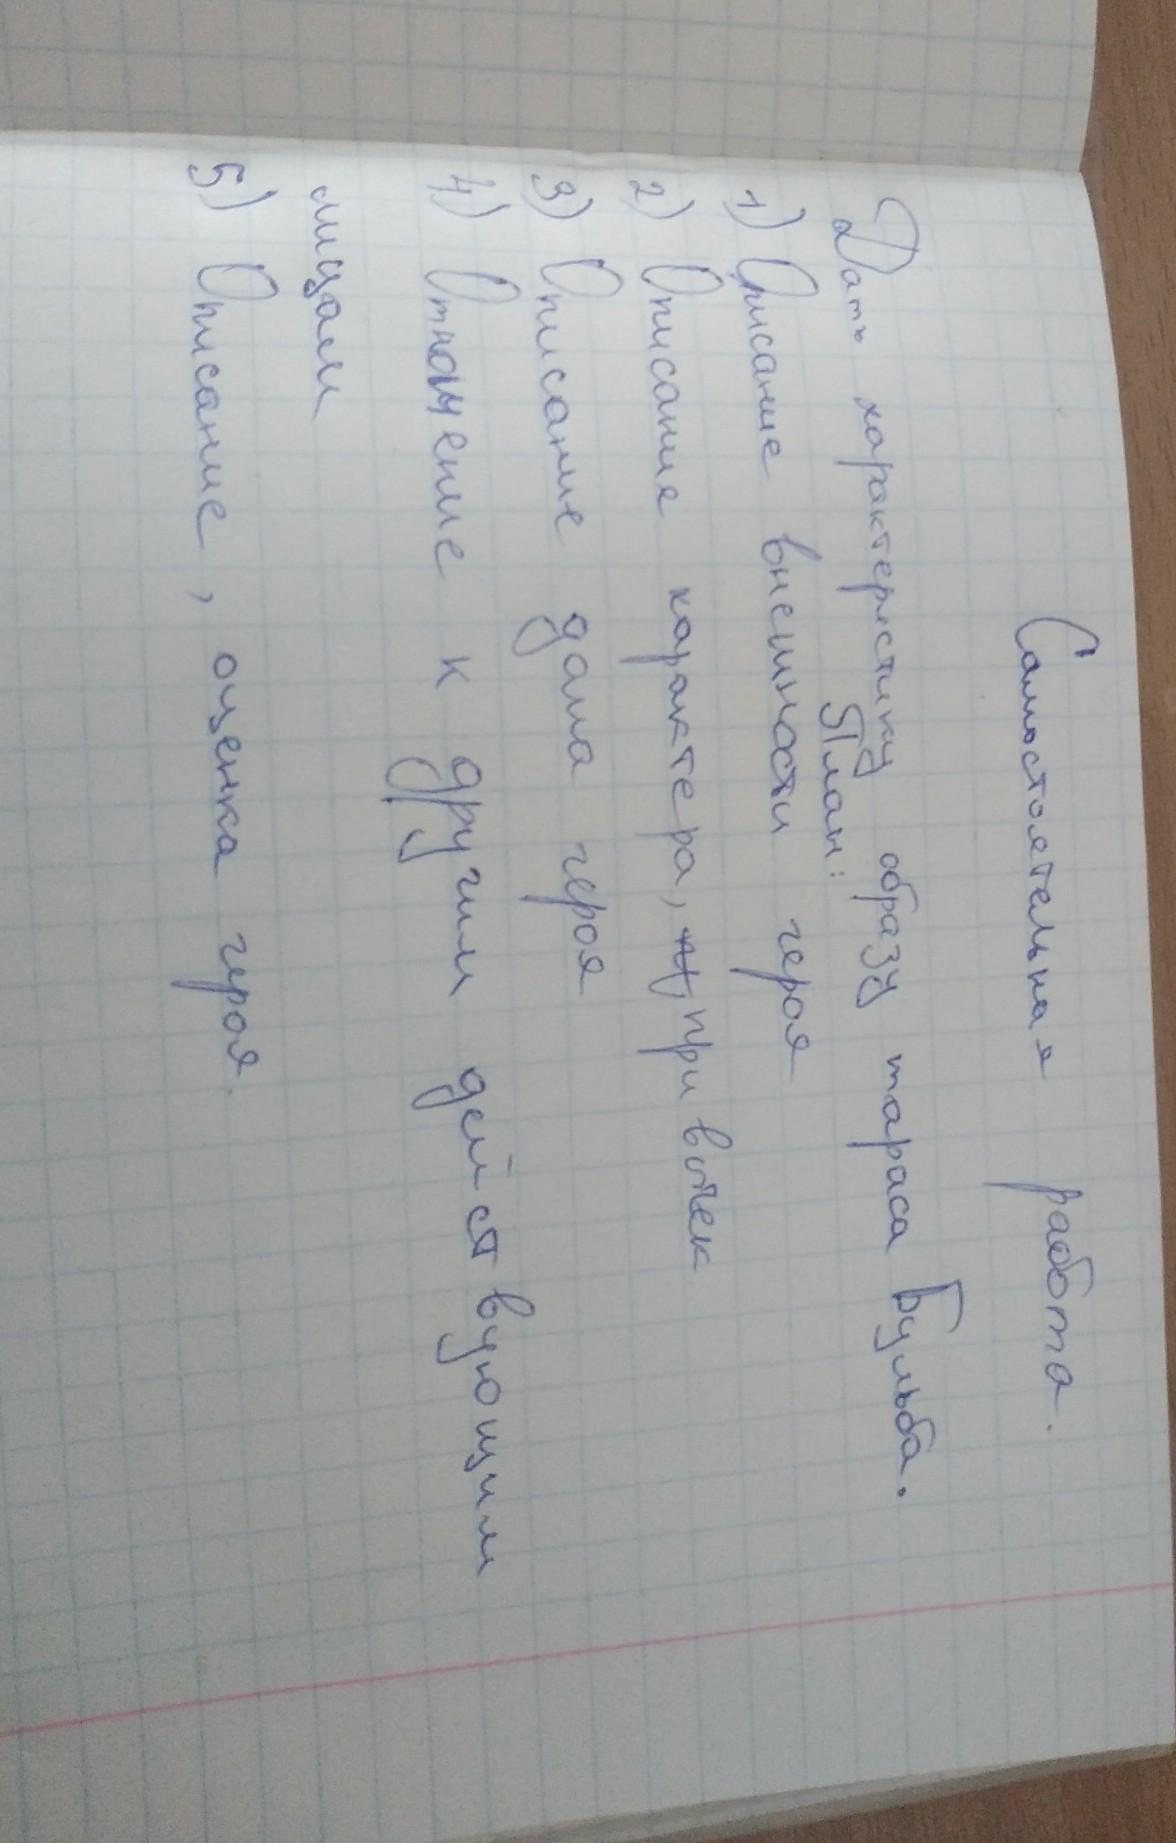 Самостоятельная работа.
Дать характеристику образу тараса Бульба.
План:
1) Описание внешности героя
2) Описание характера, привычек
3) Описание дома героя
4) Отношение к другим действующим
лицам
5) Описание, оценка героя.